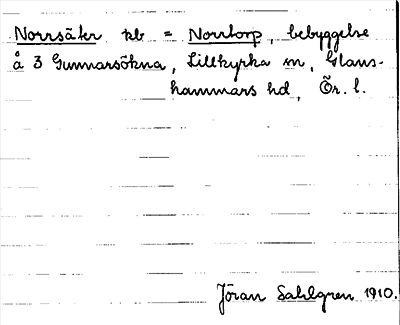 Norrsäter kb = Norrtorp, bebyggelse
å 3 Gunnarsökna, Lillkyrka sn, Glans-
hammars hd, Ör. l.
Jöran Sahlgren 1910.